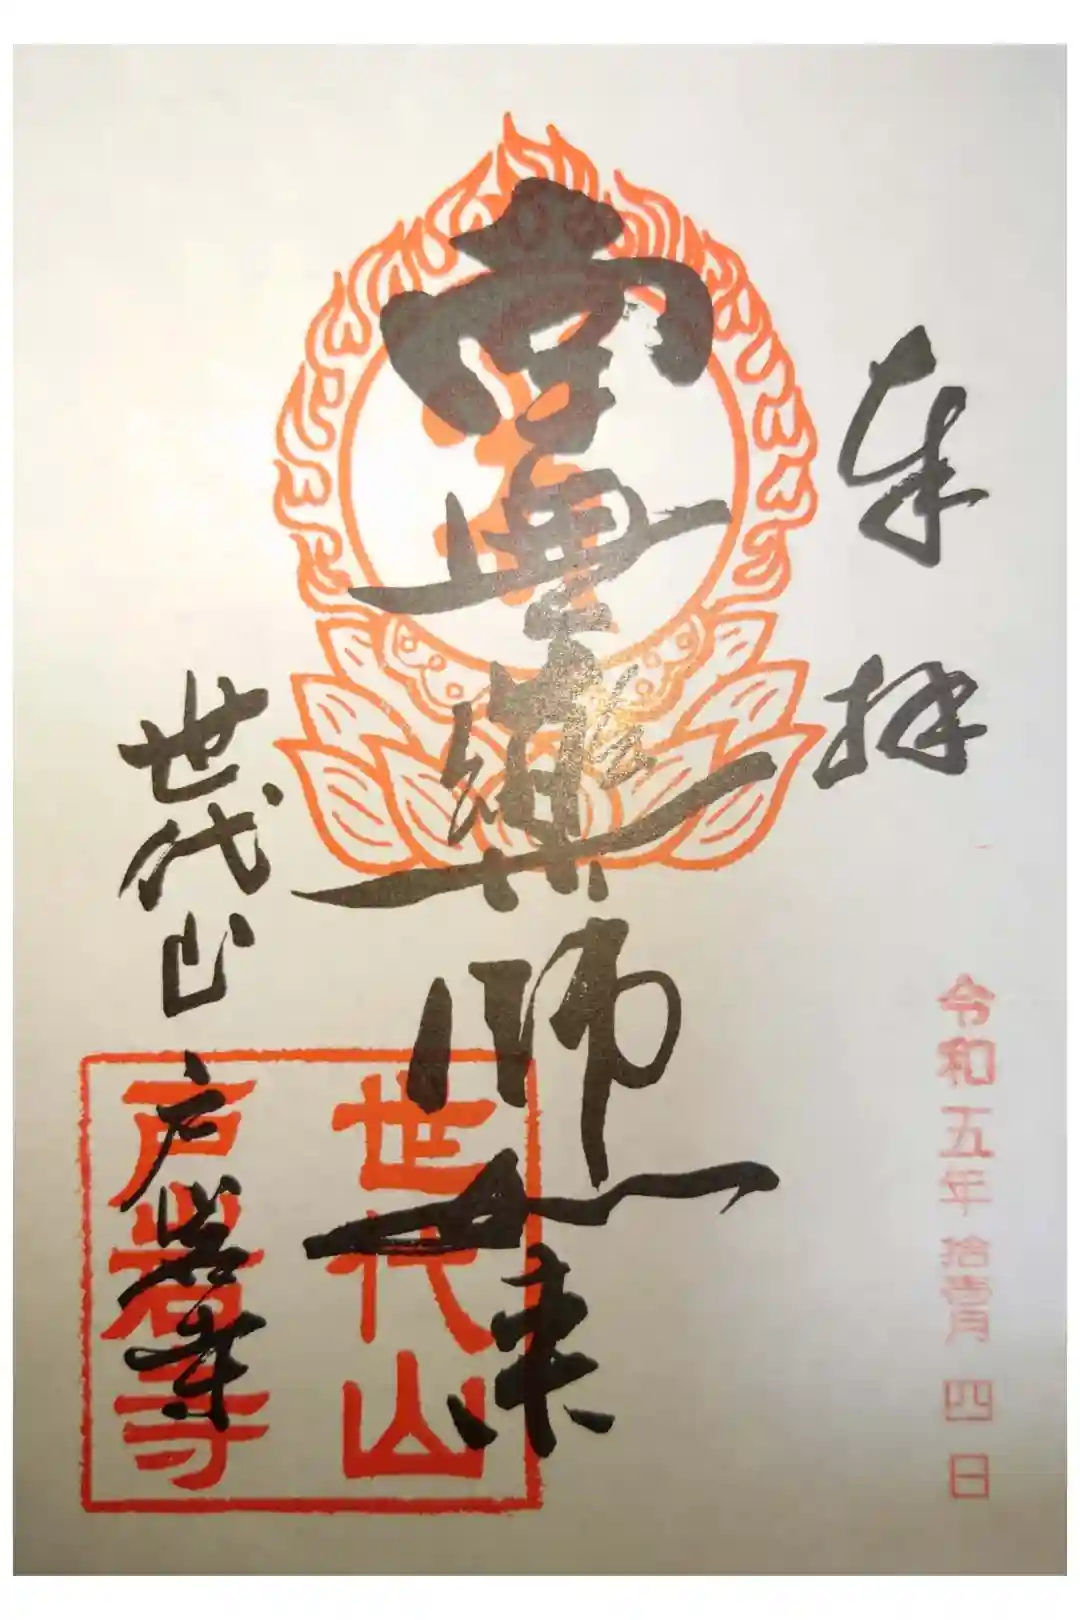 奉拝
令和五年拾壱月四日
師如来
世代山 戸岩寺
世代山
戸岩寺